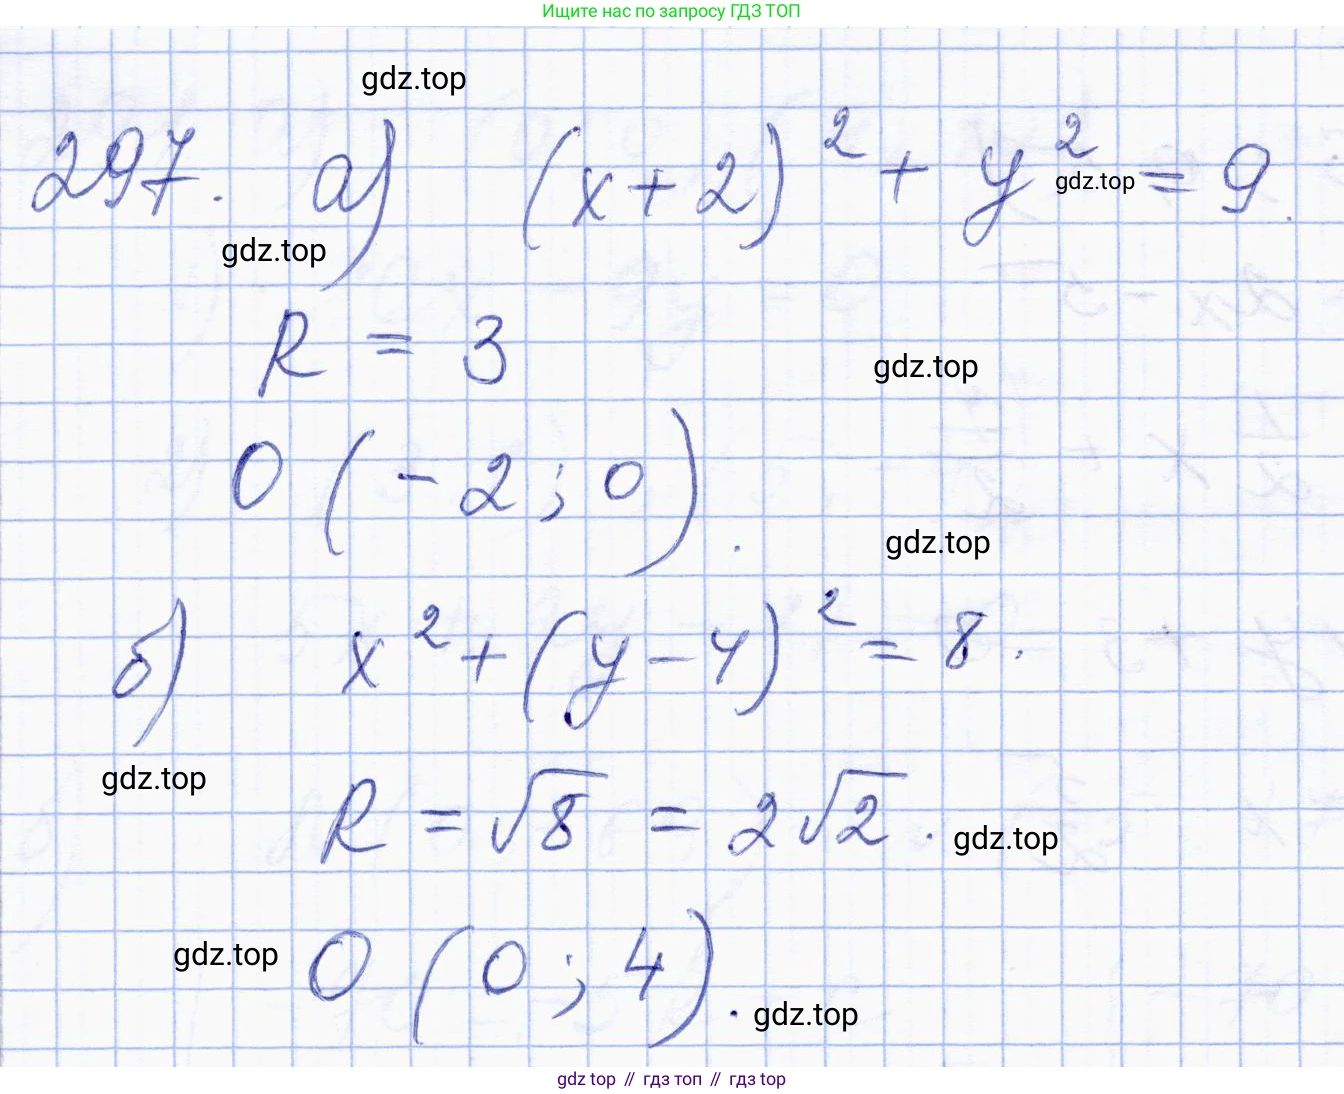 Ищите нас по запросу ГДЗ ТОП
gdz.top
297. а) (x+2)² + y² = 9.
gdz.top
gdz.top
R = 3
gdz.top
O (-2; 0).
gdz.top
б) x² + (y-4)² = 8.
gdz.top
R = √8 = 2√2.
gdz.top
gdz.top
O (0; 4).
gdz.top
gdz top // гдз топ // гдз top